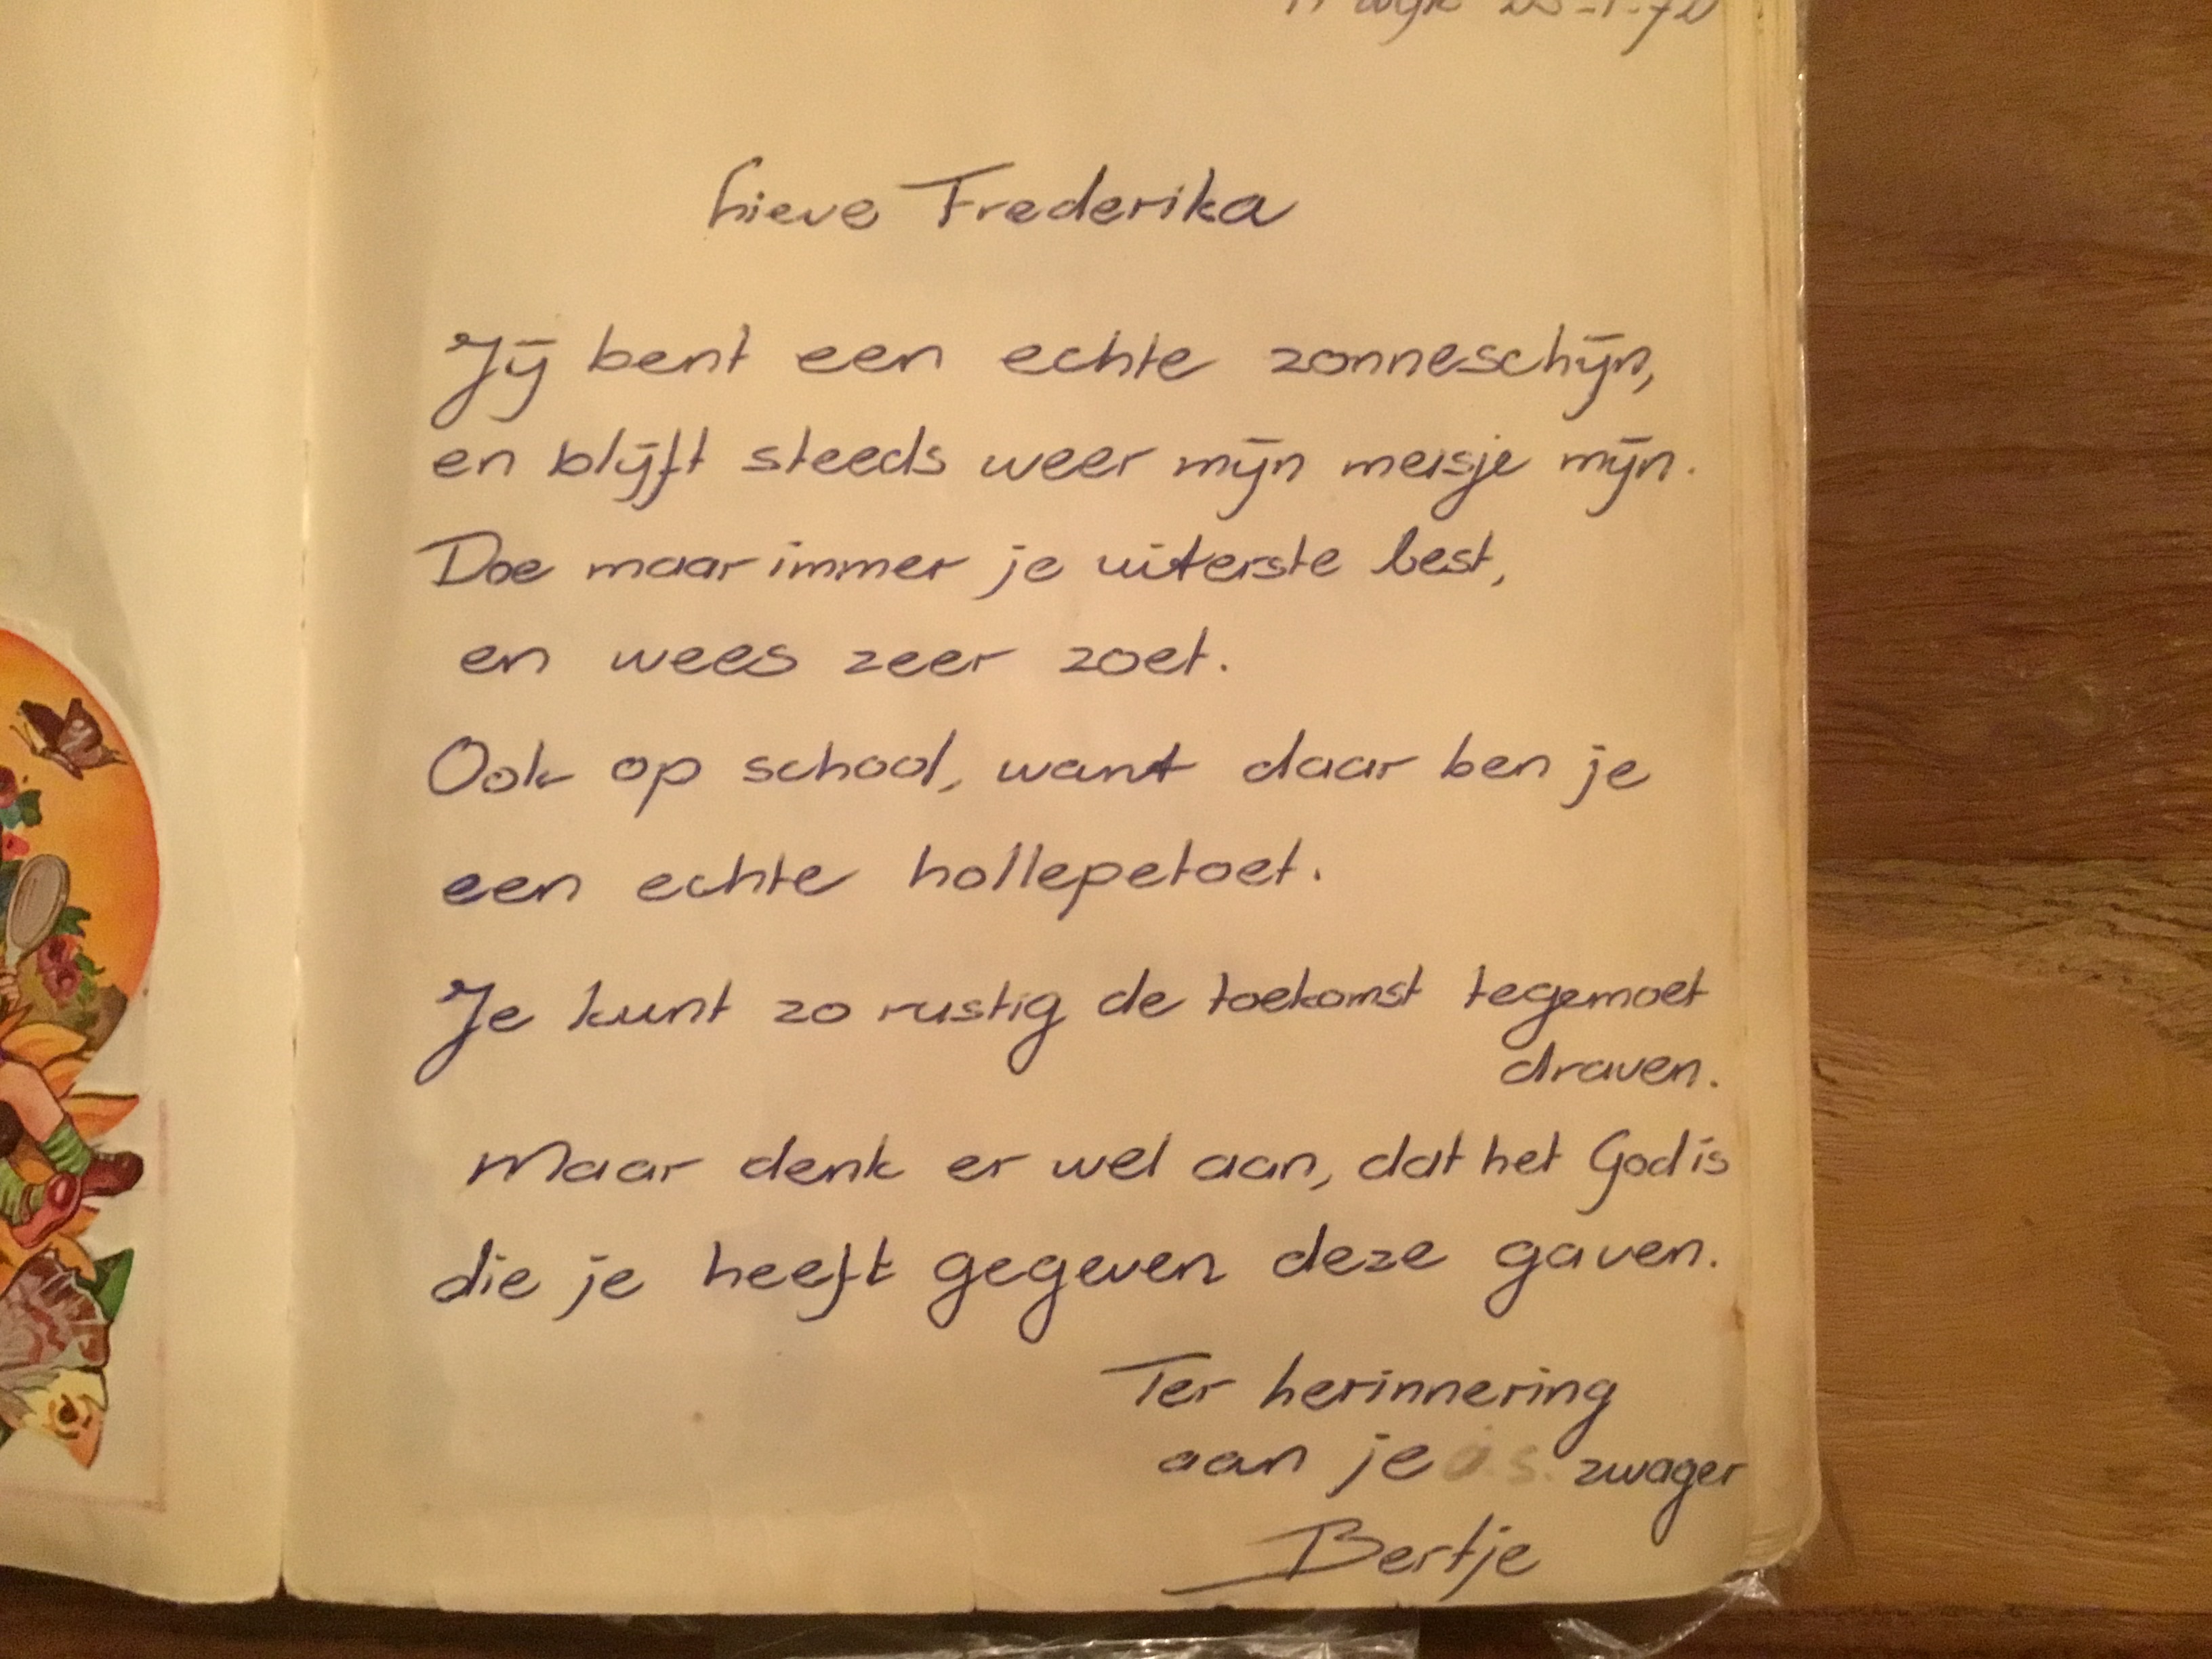 Lieve Frederika
Jij bent een echte zonneschijn,
en blijft steeds weer mijn meisje mijn.
Doe maar immer je uiterste best,
en wees zeer zoet.
Ook op school, want daar ben je
een echte hollepetoet.
Je kunt zo rustig de toekomst tegemoet
draven.
Maar denk er wel aan, dat het God is
die je heeft gegeven deze gaven.
Ter herinnering
aan je a.s. zwager
Bertje